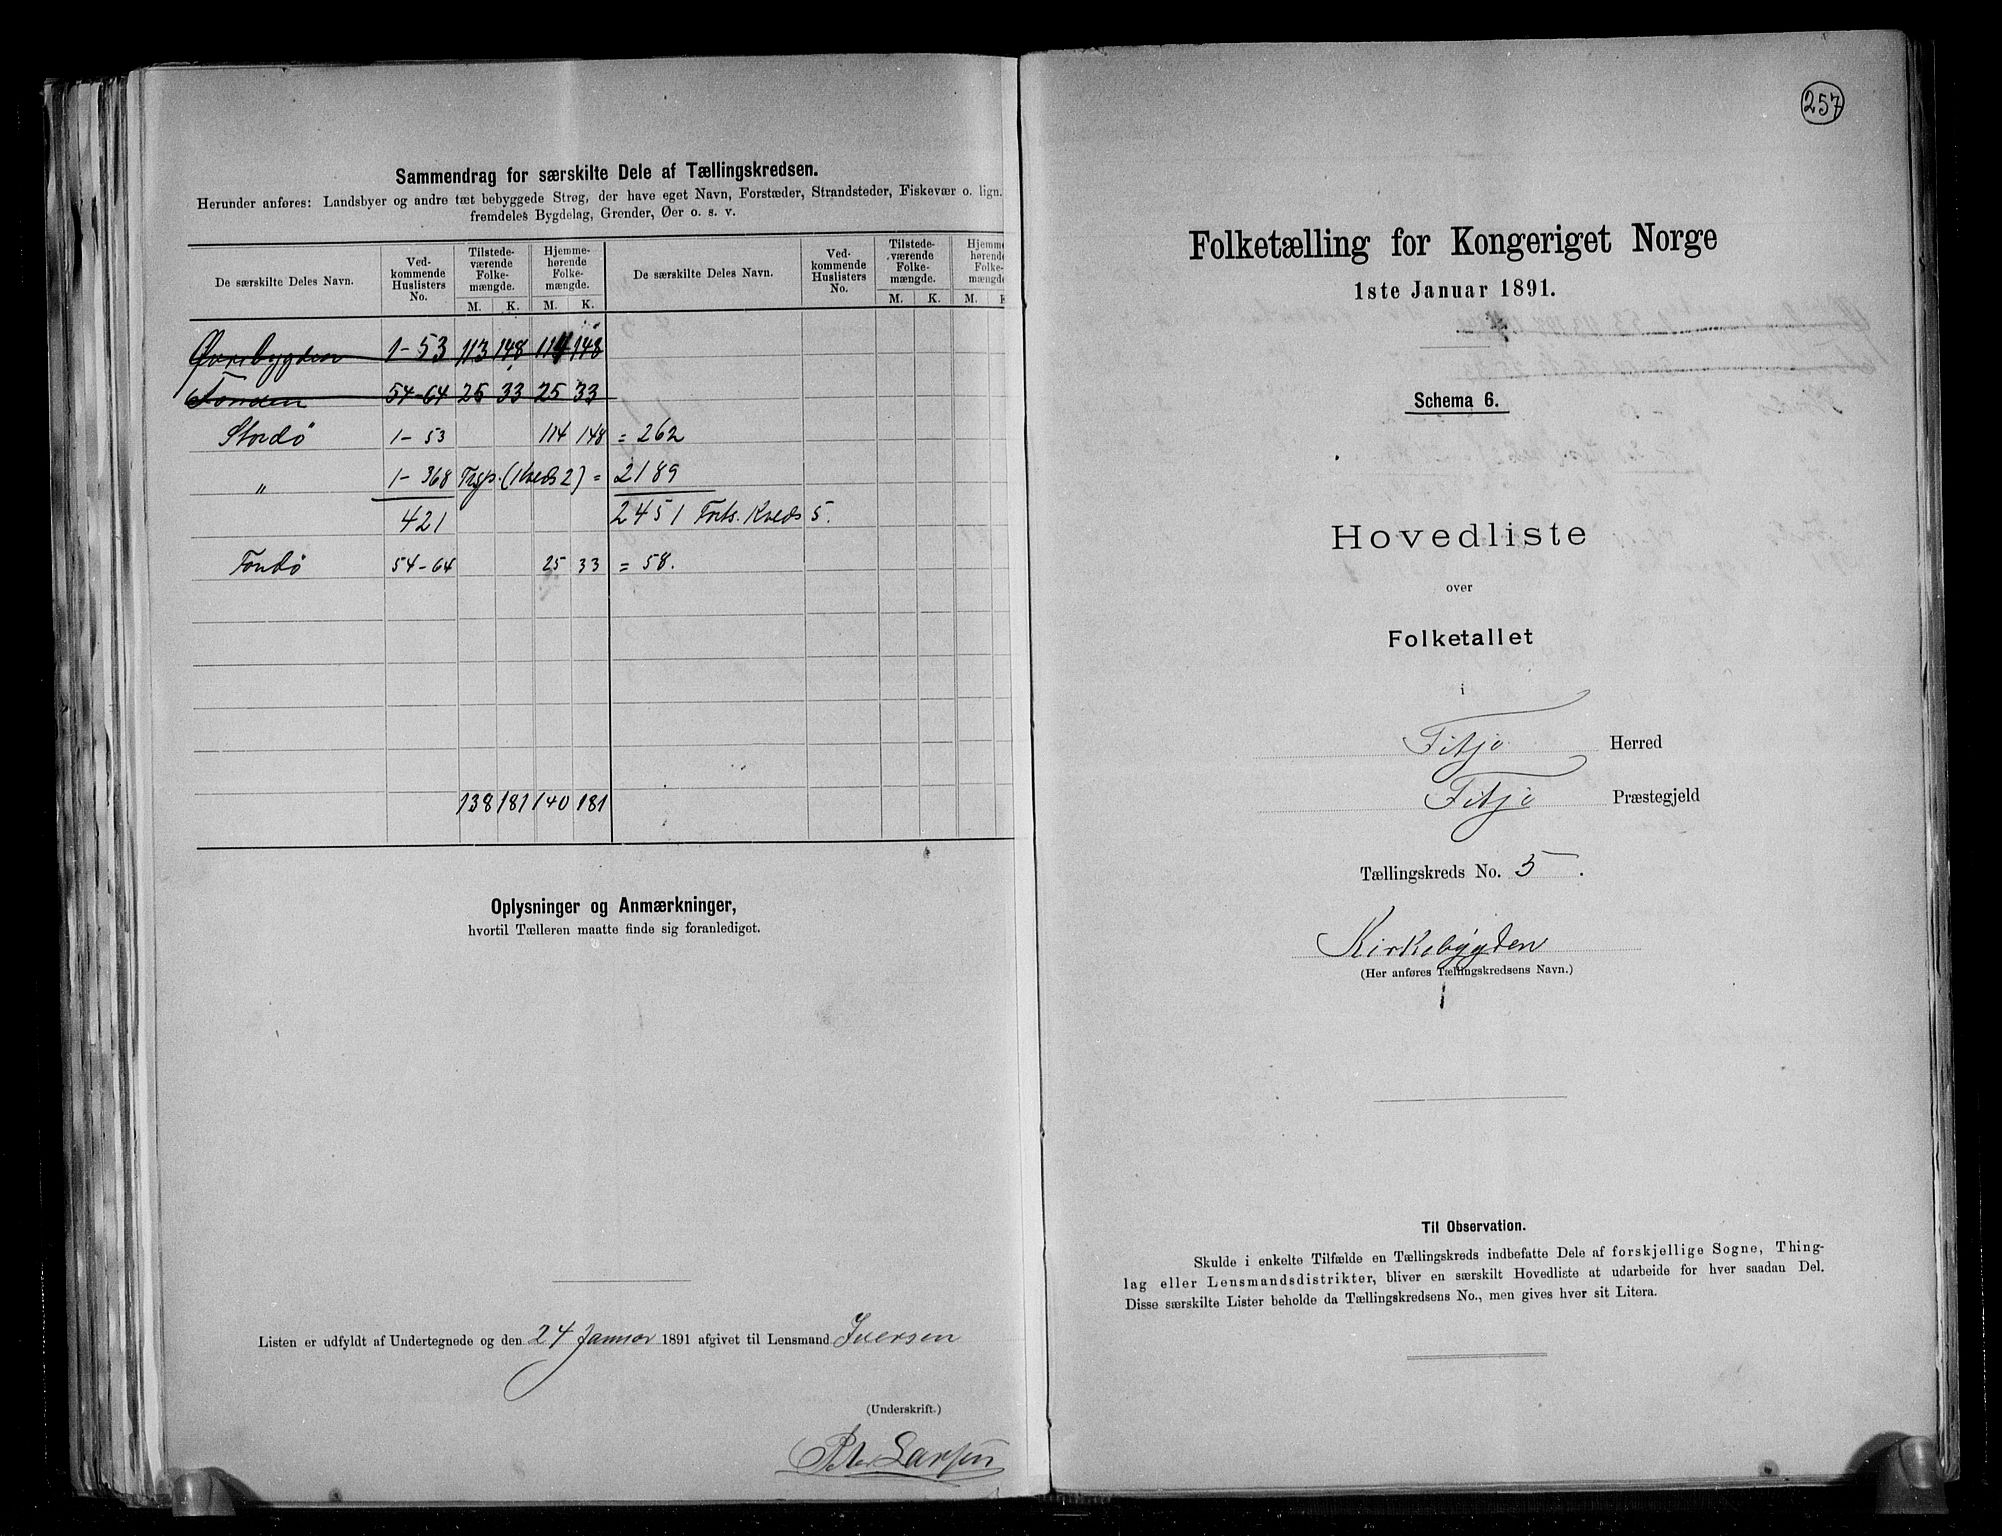 Sammendrag for særskilte Dele af Tællingskredsen.
Herunder anføres: Landsbyer og andre tæt bebyggede Strøg, der have eget Navn, Forstæder, Strandsteder, Fiskevær o. lign.
fremdeles Bygdelag, Grender, Øer o. s. v.
De særskilte Deles Navn. Ved-kommende Huslisters No. Tilstede-værende Folke-mængde. Hjemme-hørende Folke-mængde. De særskilte Deles Navn. Ved-kommende Huslisters No. Tilstede-værende Folke-mængde. Hjemme-hørende Folke-mængde
M. K. M. K. M. K. M. K
Øvrebygden 1-53 113 148 114 148
Fonden 54-64 25 33 25 33
Stordø 1-53 114 148 = 262
" 1-368 Trsp. (Kreds 2) = 2189
421 2451 Forts. Kreds 5.
Fondø 54-64 25 33 = 58.
138 181 140 181
Oplysninger og Anmærkninger,
hvortil Tælleren maatte finde sig foranlediget.
Listen er udfyldt af Undertegnede og den 24 Januar 1891 afgivet til Lensmand Iversen
(Underskrift.)
Larsen
257
Folketælling for Kongeriget Norge
1ste Januar 1891.
Schema 6.
Hovedliste
over
Folketallet
i
Fitjo Herred
Fitjo Præstegjeld
Tællingskreds No. 5.
Kirkebygden
(Her anføres Tællingskredsens Navn.)
Til Observation.
Skulde i enkelte Tilfælde en Tællingskreds indbefatte Dele af forskjellige Sogne, Thing-
lag eller Lensmandsdistrikter, bliver en særskilt Hovedliste at udarbeide for hver saadan Del.
Disse særskilte Lister beholde da Tællingskredsens No., men gives hver sit Litera.